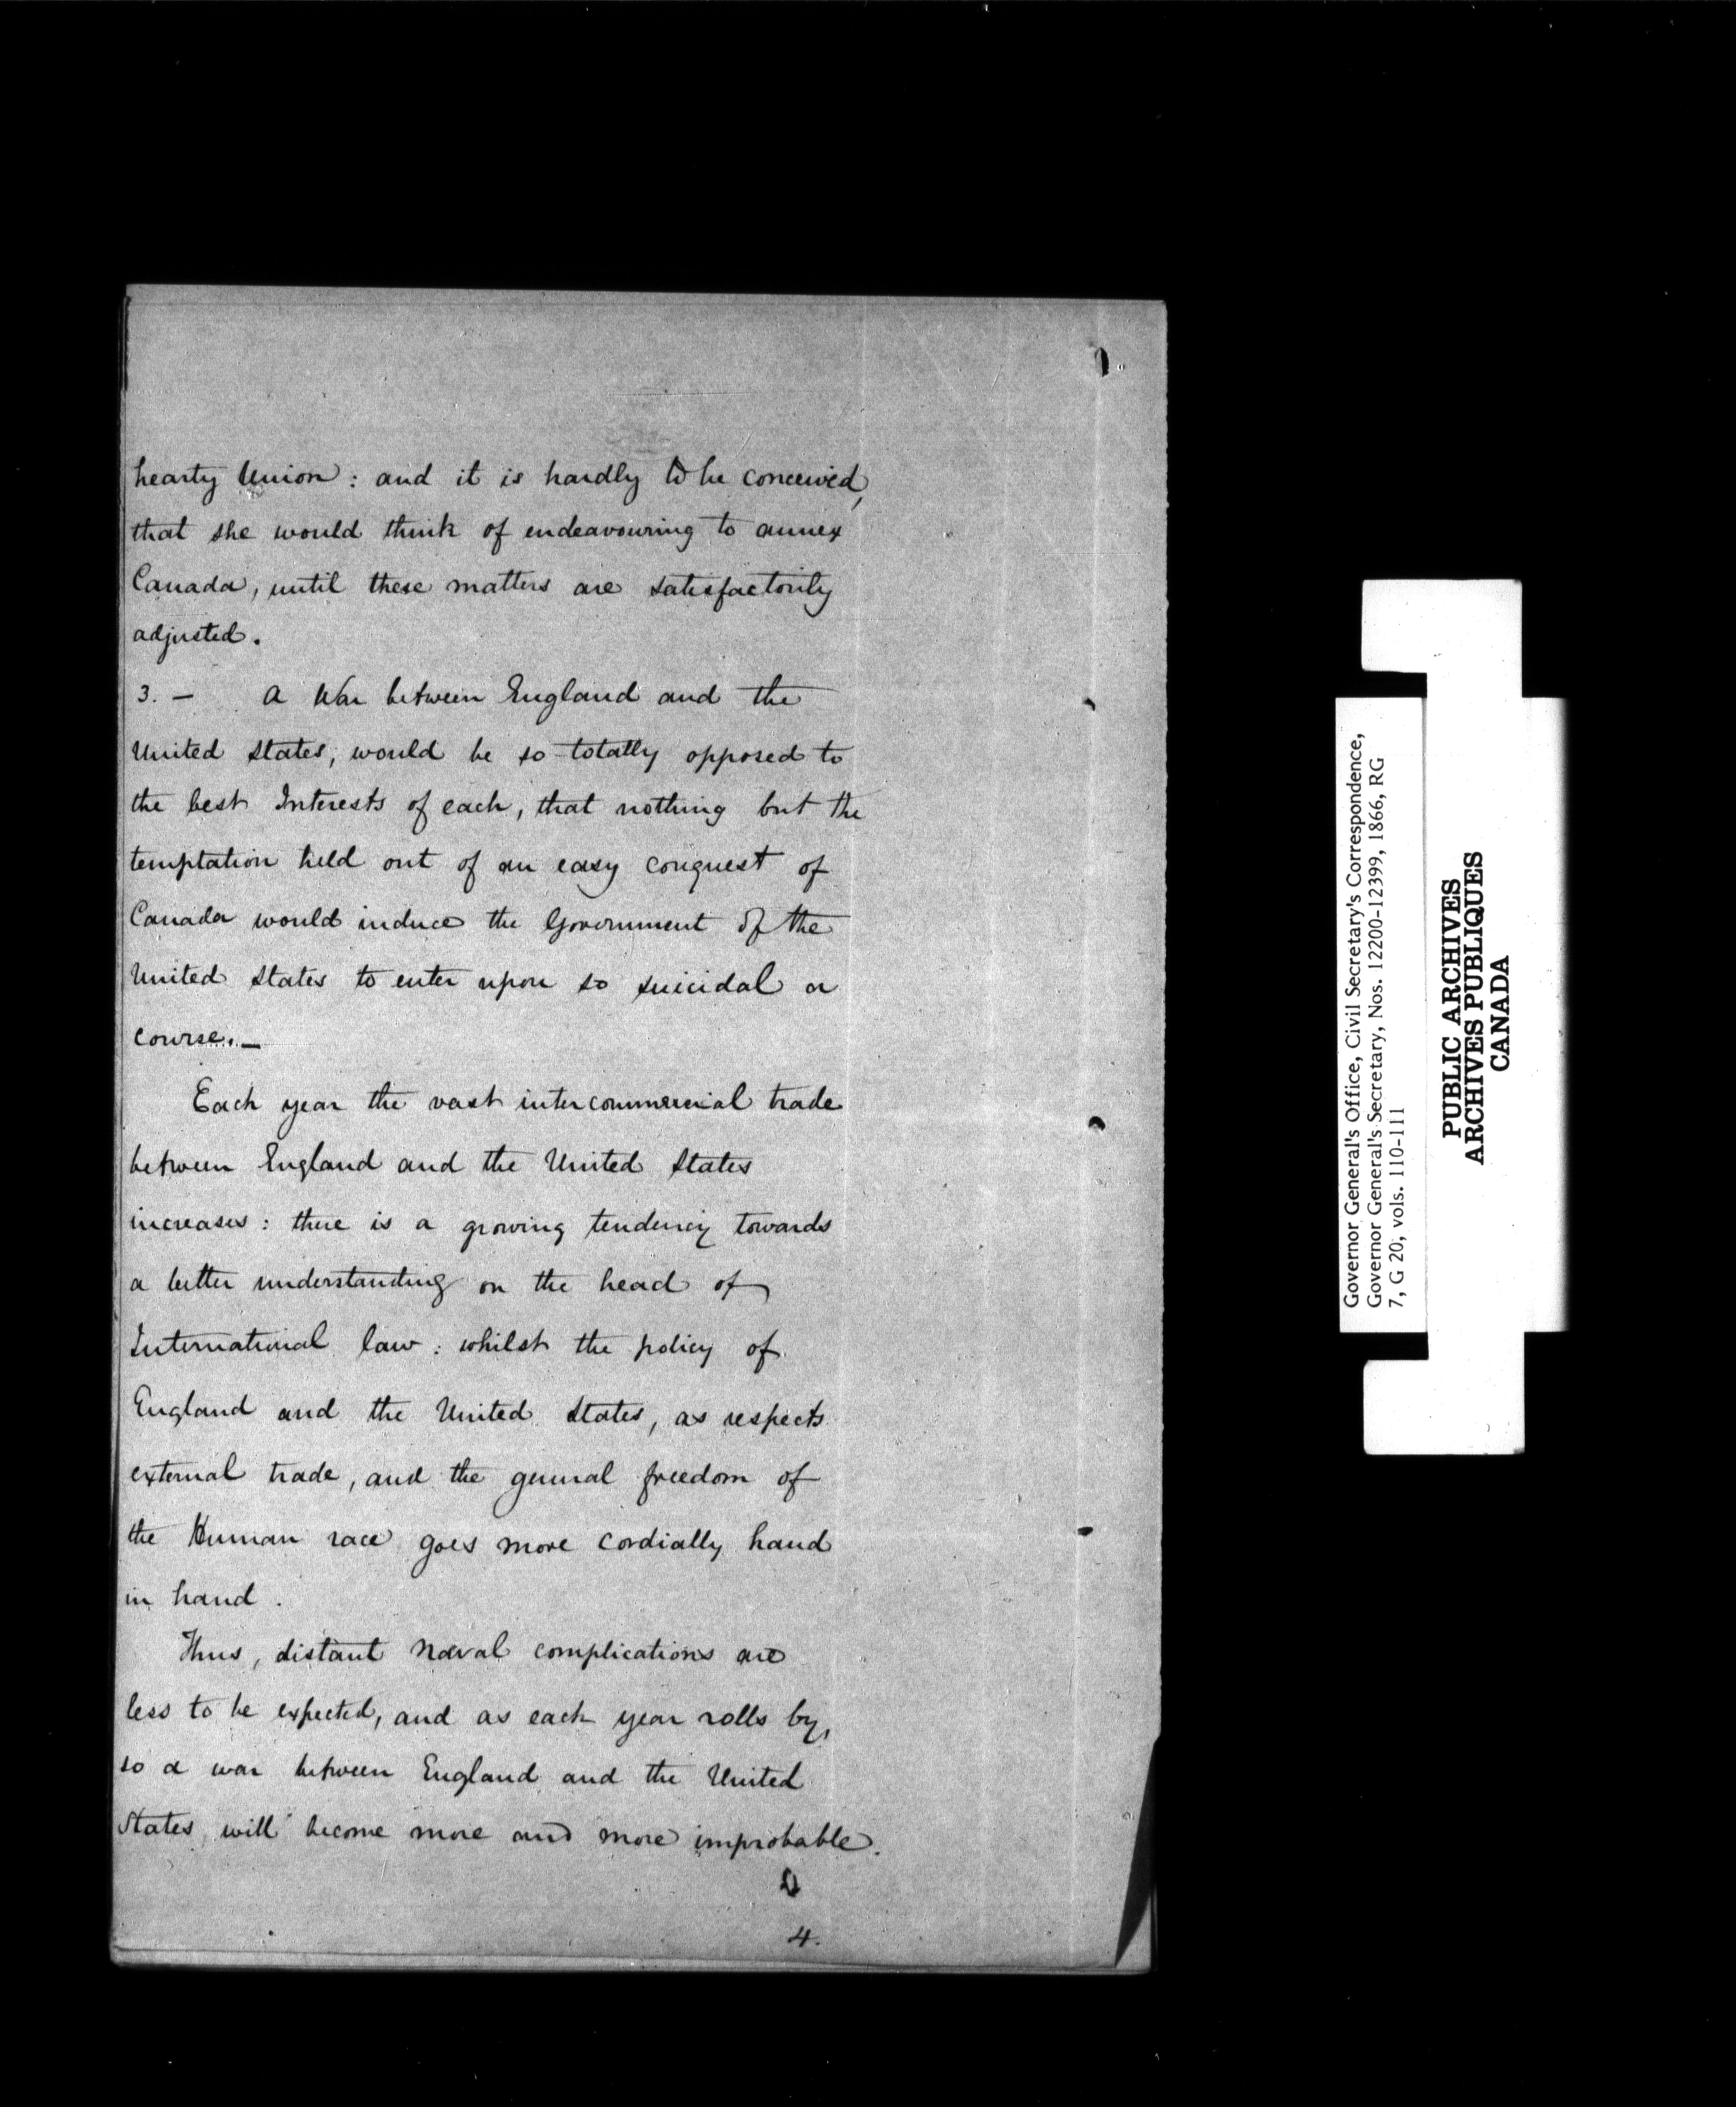 hearty Union: and it is hardly to be conceived,
that she would think of endeavouring to annex
Canada, until these matters are satisfactorily
adjusted.
3. — A War between England and the
United States, would be so totally opposed to
the best Interests of each, that nothing but the
temptation held out of an easy conquest of
Canada would induce the Government of the
United States to enter upon so suicidal a
course. —
Each year the vast intercommercial trade
between England and the United States
increases: there is a growing tendency towards
a better understanding on the head of
International law: whilst the policy of
England and the United States, as respects
external trade, and the general freedom of
the Human race goes more cordially hand
in hand.
Thus, distant Naval complications are
less to be expected, and as each year rolls by,
so a war between England and the United
States will become more and more improbable.
4.
Governor General's Office, Civil Secretary's Correspondence,
Governor General's Secretary, Nos. 12200-12399, 1866, RG
7, G 20, vols. 110-111
PUBLIC ARCHIVES
ARCHIVES PUBLIQUES
CANADA